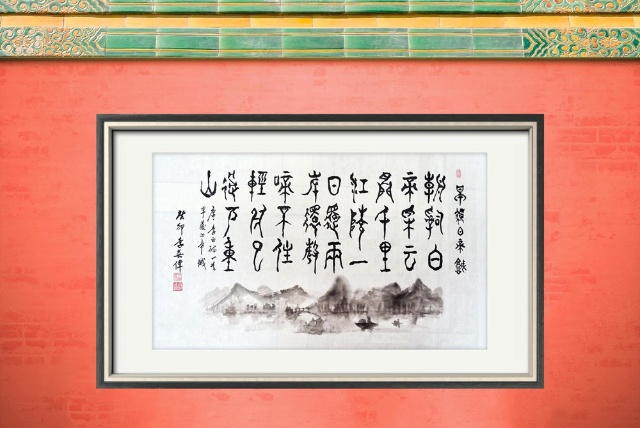 早發白帝城
朝辭白
帝彩云
間千里
江陵一
日還兩
岸猿聲
啼不住
輕舟已
過万重
山
唐李白詩一首
早發白帝城
癸卯李偉